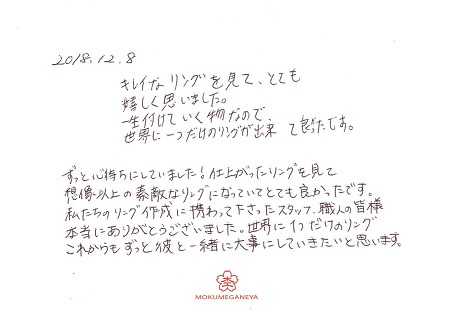 2018.12.8
キレイなリングを見て、とても
嬉しく思いました。
一生付けていく物なので、
世界に一つだけのリングが出来て良かったです。
ずっと心待ちにしていました!仕上がったリングを見て
想像以上の素敵なリングになっていてとても良かったです。
私たちのリング作成に携わって下さったスタッフ、職人の皆様
本当にありがとうございました。世界に1つだけのリング
これからもずっと彼と一緒に大事にしていきたいと思います。
MOKUMEGANEYA